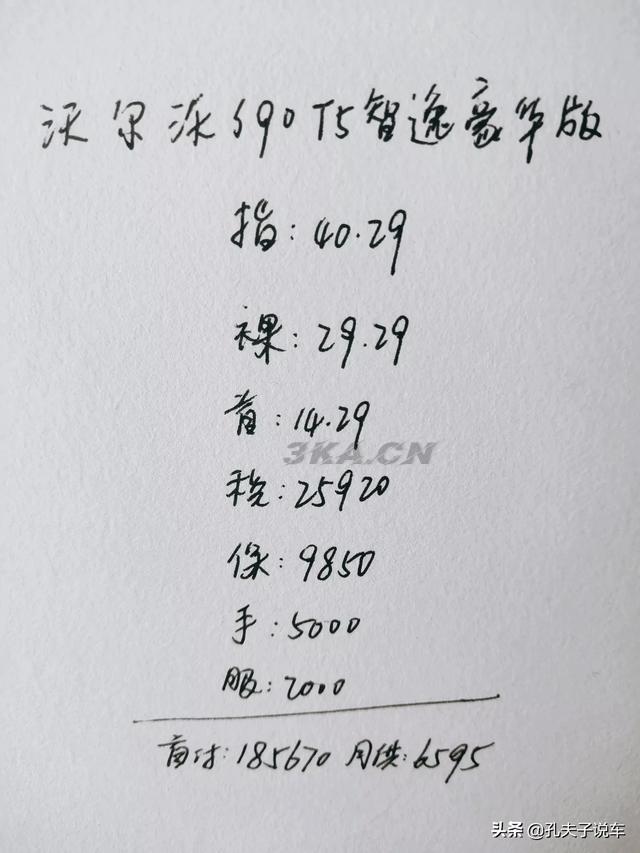 沃尔沃S90 T5智逸豪华版
指:40.29
裸:29.29
首:14.29
3KA.CN
税:25920
保:9850
手:5000
服:2000
首付:185670 月供:6595
头条 @孔夫子说车